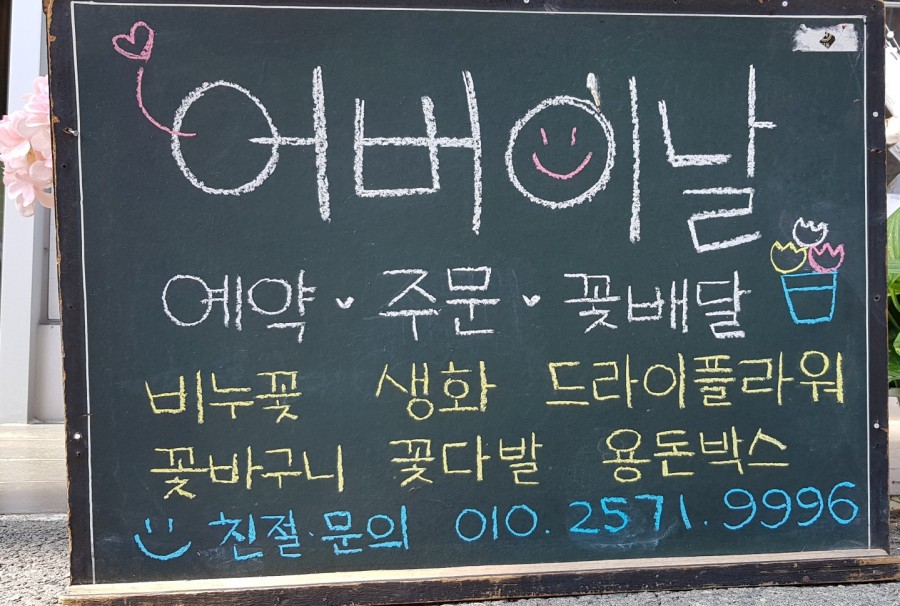 어버이날
예약·주문·꽃배달
비누꽃 생화 드라이플라워
꽃바구니 꽃다발 용돈박스
친절·문의 010.2571.9996